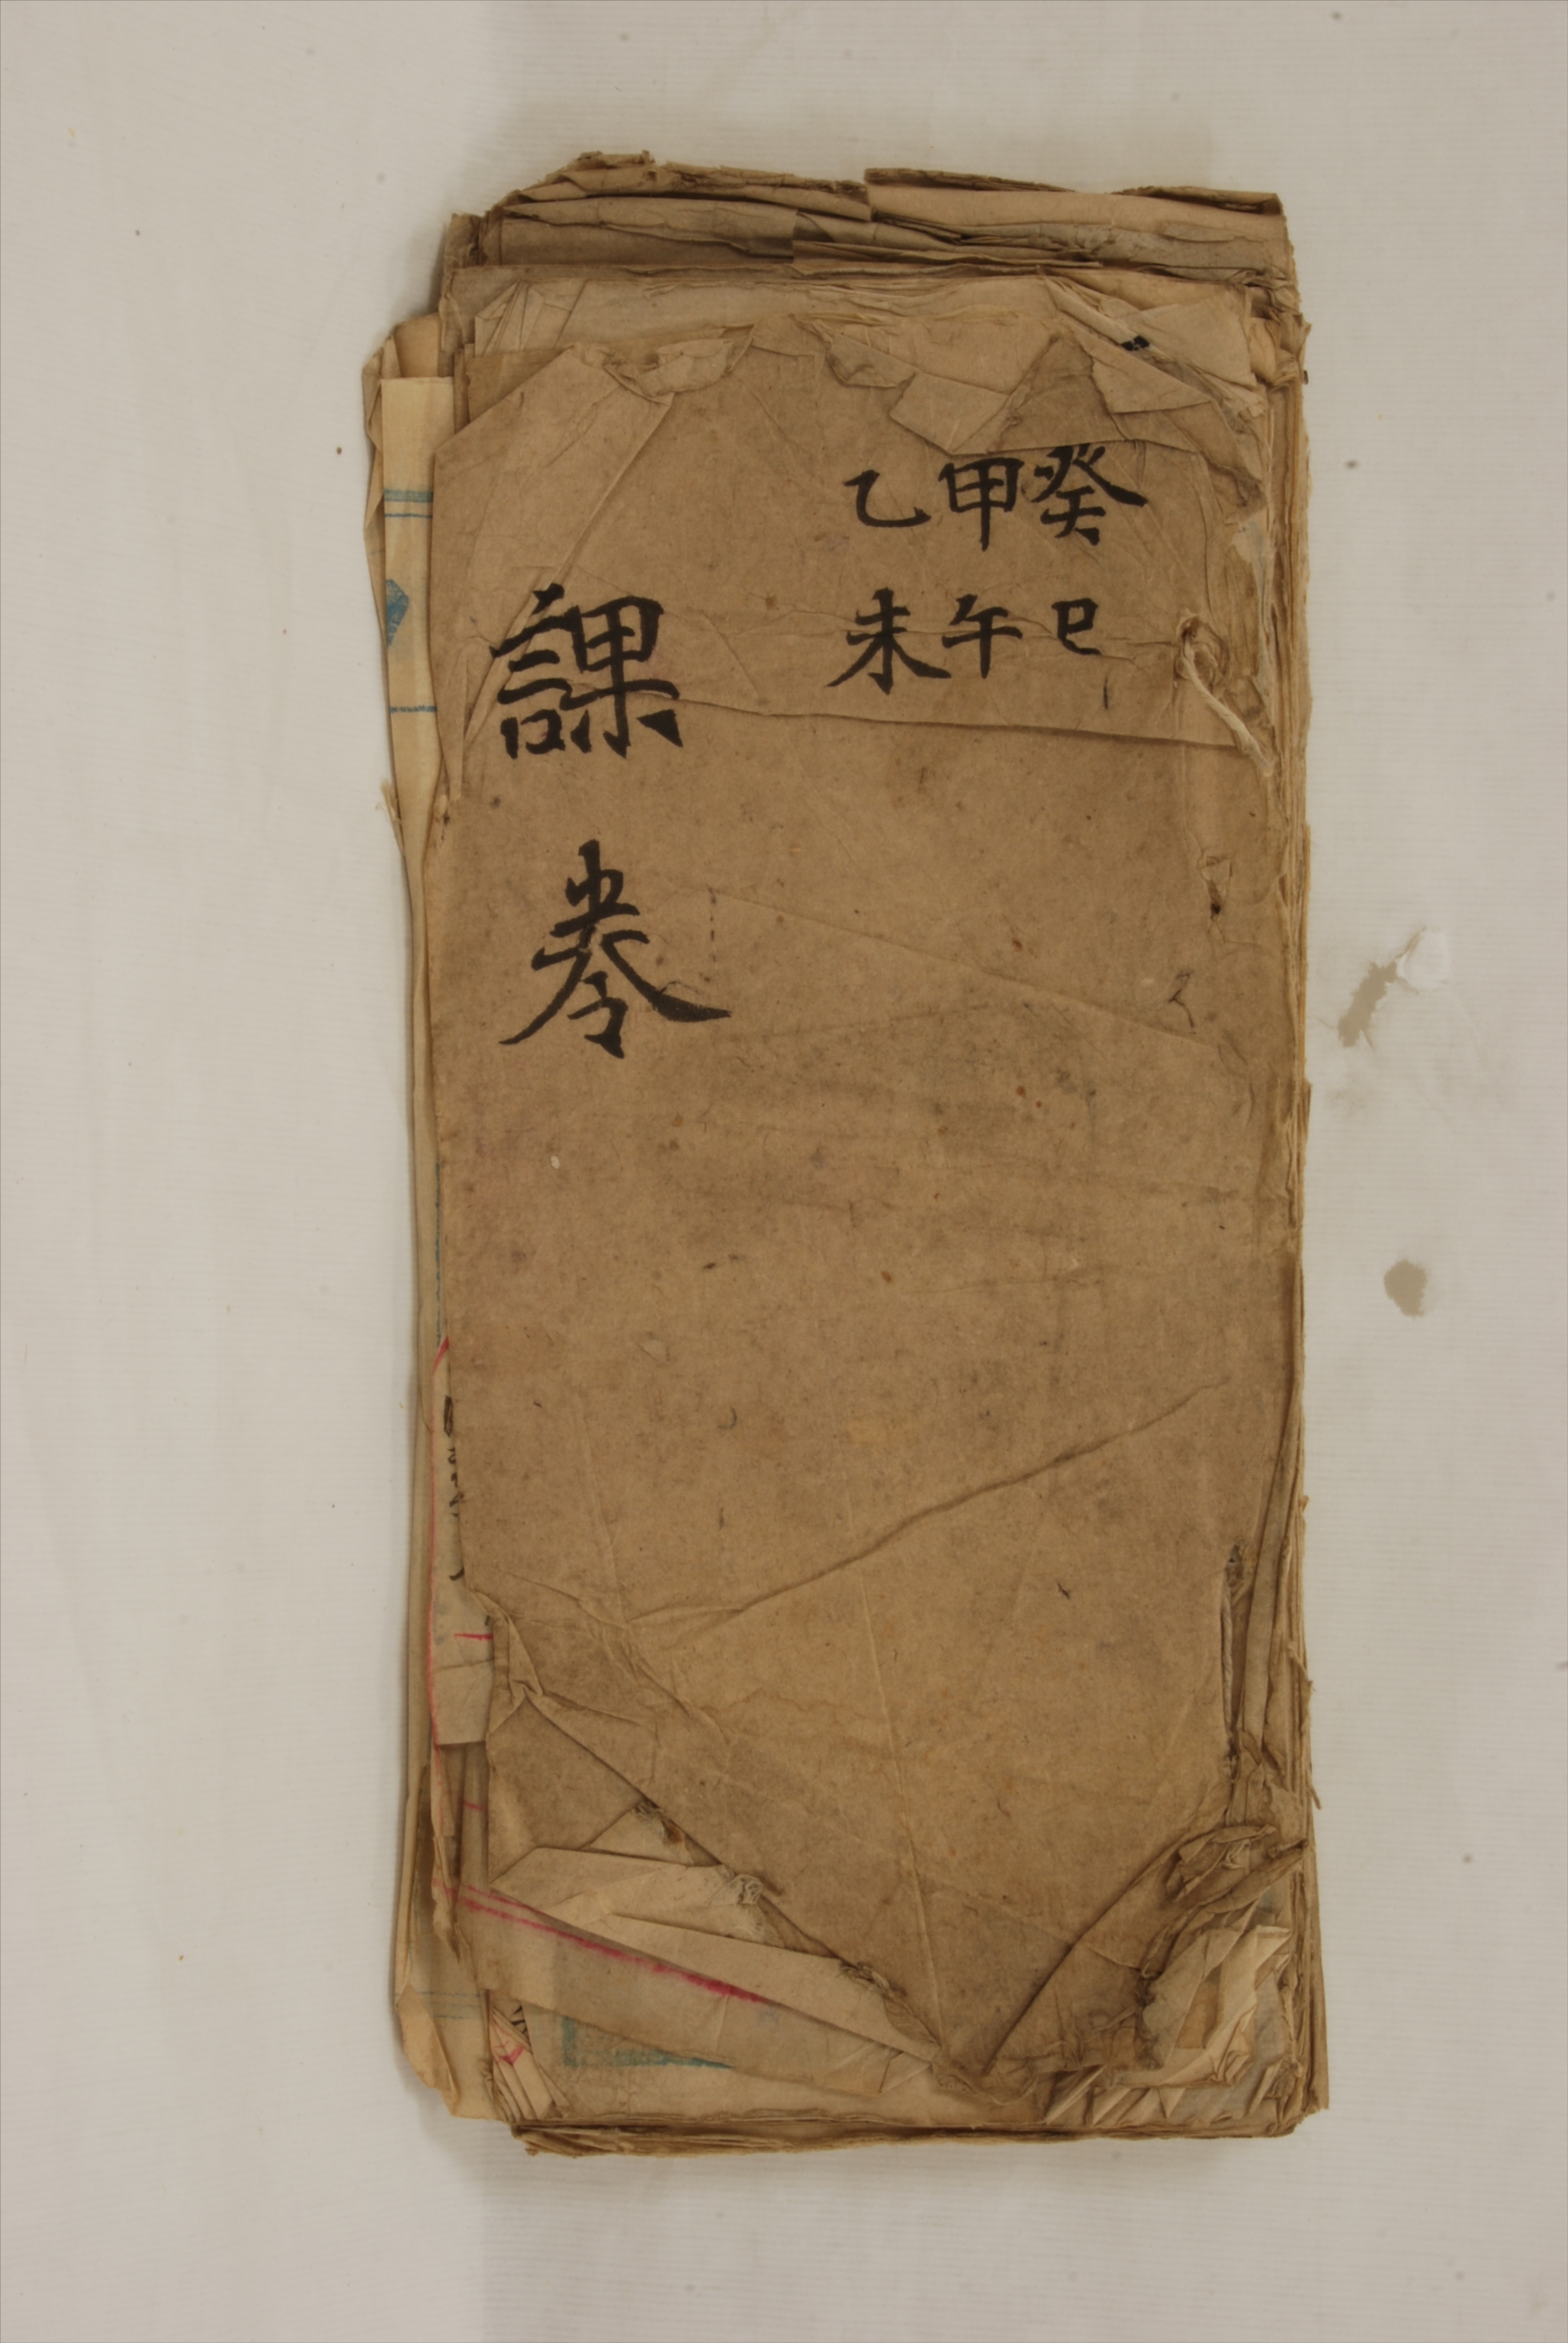 癸巳
甲午
乙未
課卷